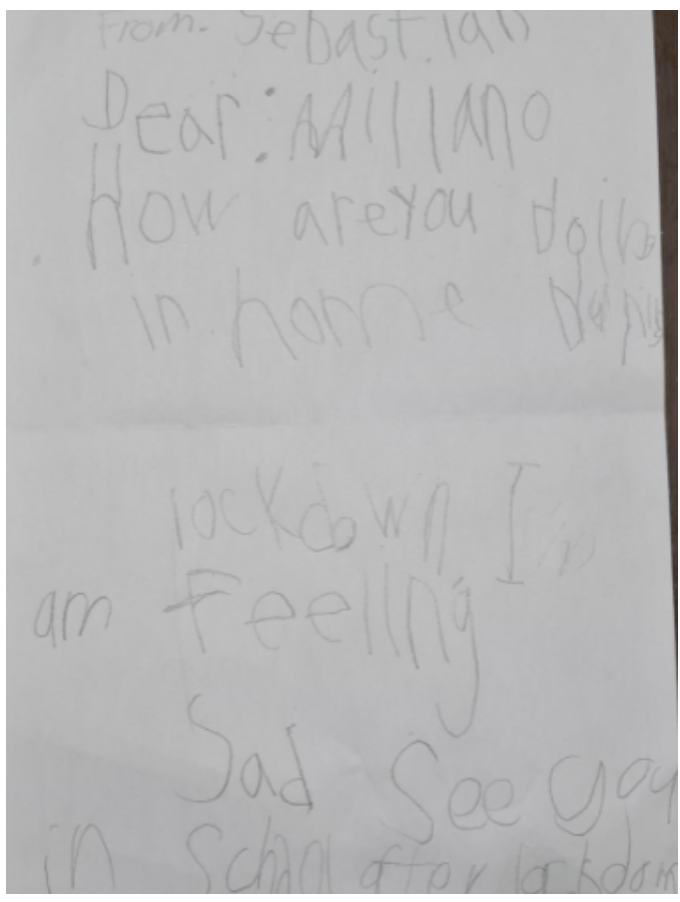 From. Sebastian
Dear: Miliano
How are you
in home
lockdown I
am Feeling
Sad See you
in Schol after lockdown